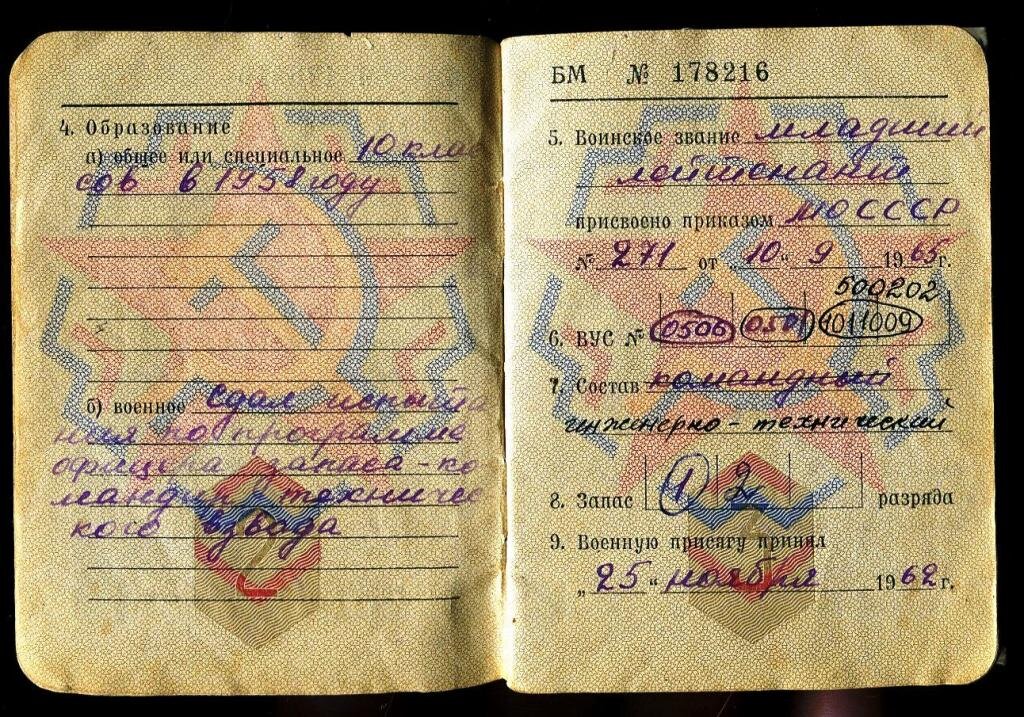 4. Образование
а) общее или специальное 10 клас
сов в 1958 году
б) военное Сдал испыта
ния по программе
офицера запаса - ко
мандир техничес
кого взвода
БМ № 178216
5. Воинское звание младший
лейтенант
присвоено приказом МО СССР
№ 271 от „10“ 9 1965 г.
500202
6. ВУС № 0506 0501 1011009
7. Состав командный
инженерно - технический
8. Запас 1 2 разряда
9. Военную присягу принял
„25“ ноября 1962 г.